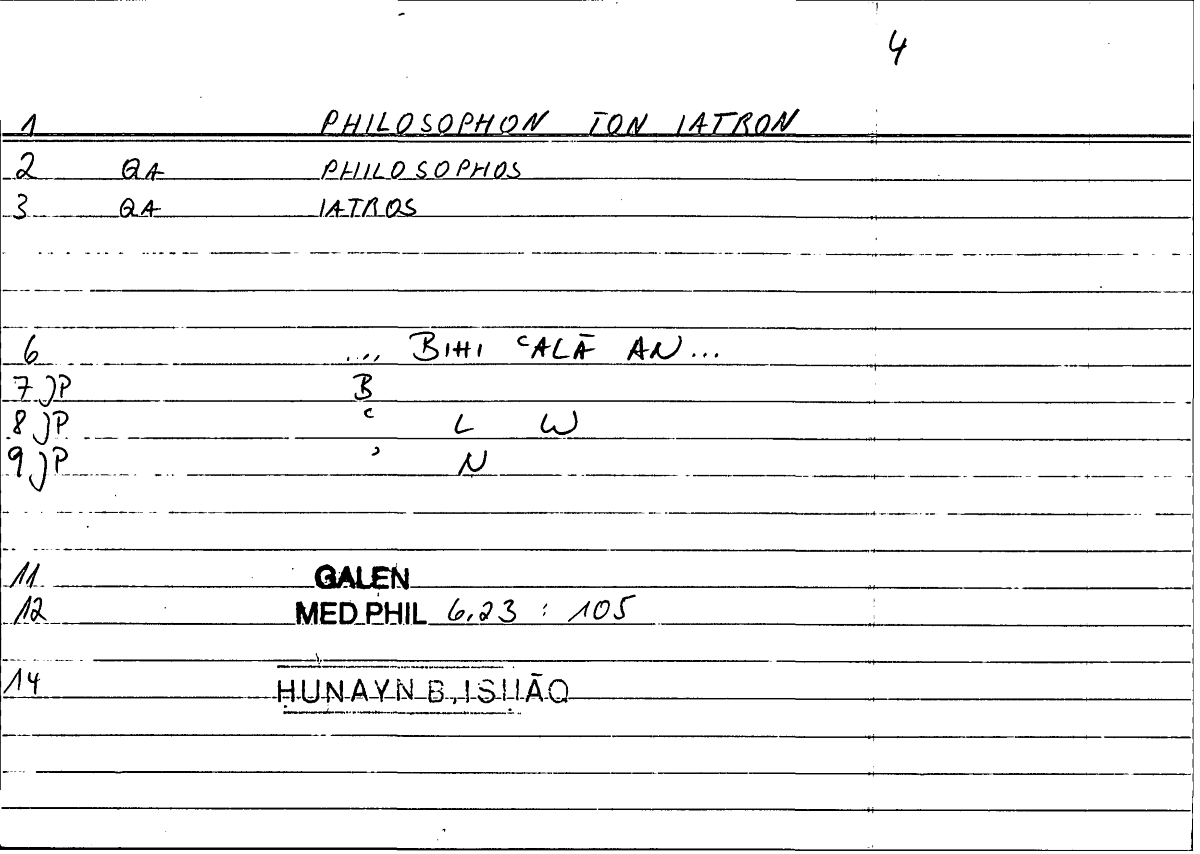 4
1 PHILOSOPHON TON IATRON
2 QA PHILOSOPHOS
3 QA IATROS
6 .... BIHI ʿALĀ AN...
7 JP B
8 JP ʿ L W
9 JP ʾ N
11 GALEN
12 MED PHIL 6.23 : 105
14 ḤUNAYN B. ISḤĀQ